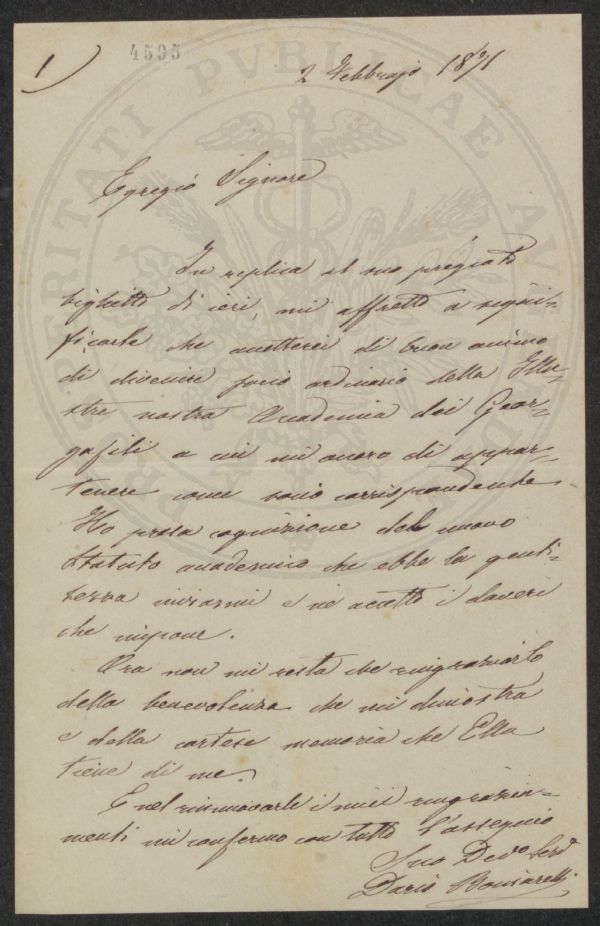 1)
4595
2 Febbrajo 1871
Egregio Signore
In replica al suo pregiato
biglietto di ieri, mi affretto a signi-
ficarle che accetterei di buon animo
di divenire socio ordinario della Illu-
stre nostra Accademia dei Geor-
gofili a cui mi onoro di appar-
tenere come socio corrispondente.
Ho presa cognizione del nuovo
Statuto accademico che ebbe la genti-
lezza inviarmi e ne accetto i doveri
che impone.
Ora non mi resta che ringraziarlo
della benevolenza che mi dimostra
e della cortese memoria che Ella
tiene di me.
E nel rinnuovarle i miei ringrazia-
menti mi confermo con tutto l'ossequio
Suo Devo Servo
Dario
PROSPERITATI PUBLICAE AUGENDAE